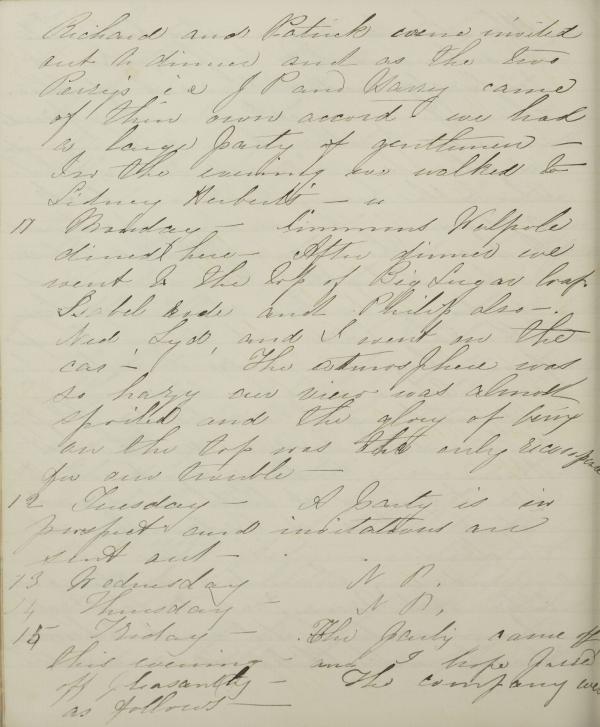 Richard and Patrick were invited
out to dinner and as the two
Perry's i e J P and Harry came
of thier own accord we had
a large party of gentlemen —
In the evening we walked to
Sidney Herbert's —
11 Monday — Simmons Walpole
dined here — After dinner we
went to the top of Big Sugar loaf
Isabel rode and Philip also —
Ned, Lyd, and I went on the
car — The atmosphere was
so hazy our view was almost
spoiled and the glory of being
on the top was the only recompense
for our trouble —
12 Tuesday — A party is in
prospect and invitations are
sent out
13 Wednesday N P.
14 Thursday — N P.
15 Friday — The party came off
this evening — and I hope passed
off pleasantly — The company was
as follows —